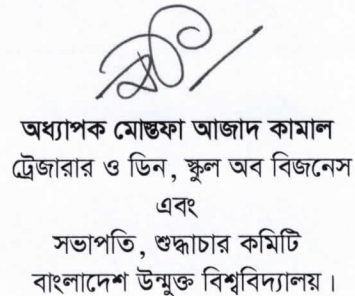 অধ্যাপক মোস্তফা আজাদ কামাল
ট্রেজারার ও ডিন, স্কুল অব বিজনেস
এবং
সভাপতি, শুদ্ধাচার কমিটি
বাংলাদেশ উন্মুক্ত বিশ্ববিদ্যালয়।